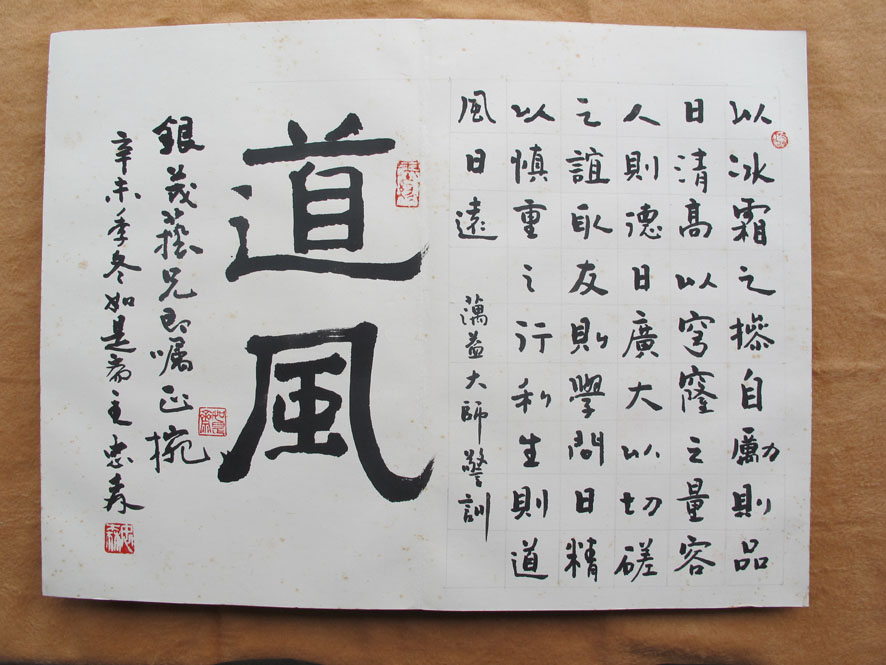 以冰霜之操自勵則品
日清高以穹窿之量容
人則德日廣大以切磋
之誼取友則學問日精
以慎重之行利生則道
風日遠
蕅益大師警訓
道風
銀茂藝兄即囑正捥
辛未季冬如是齋主忠森